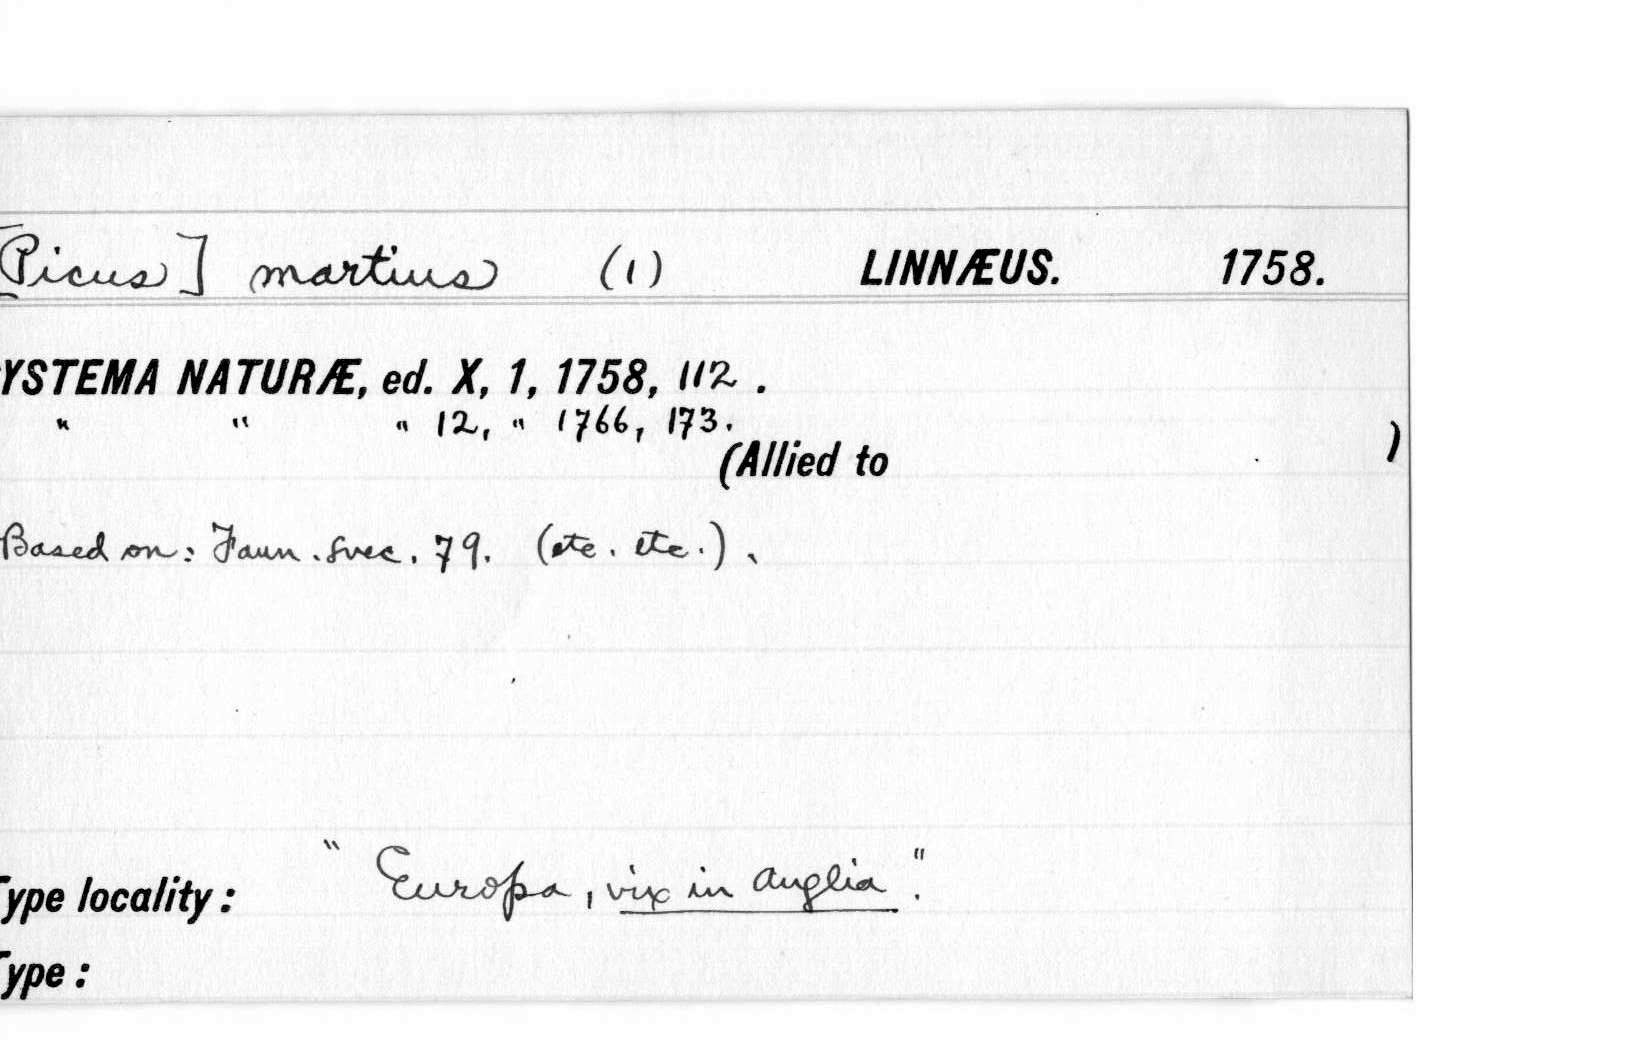 [Picus] martius (1) LINNÆUS. 1758.
YSTEMA NATURÆ, ed. X, 1, 1758, 112.
" " " 12, " 1766, 173.
(Allied to )
Based on: Faun. Svec. 79. (etc. etc.).
Type locality: "Europa, vix in Anglia".
Type: